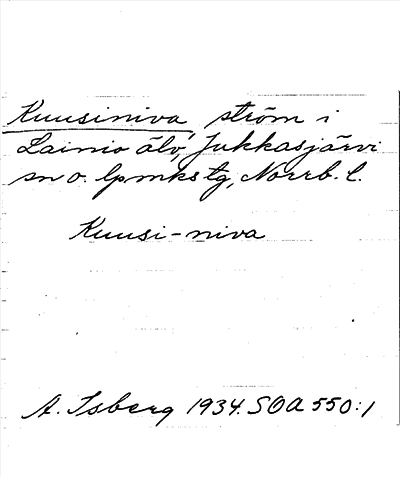 Kuusiniva, ström i
Lainio älv, Jukkasjärvi
sn o. lpmkstg, Norrb. l.
Kuusi-niva
A. Isberg 1934. SOA 550:1